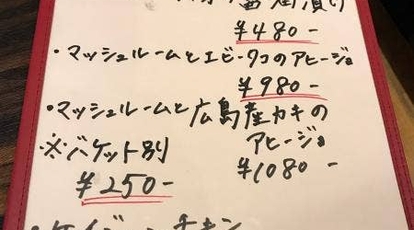 ¥480-
・マッシュルームとエビ・タコのアヒージョ
¥980-
・マッシュルームと広島産カキの
アヒージョ
※バケット別
¥1080-
¥250-